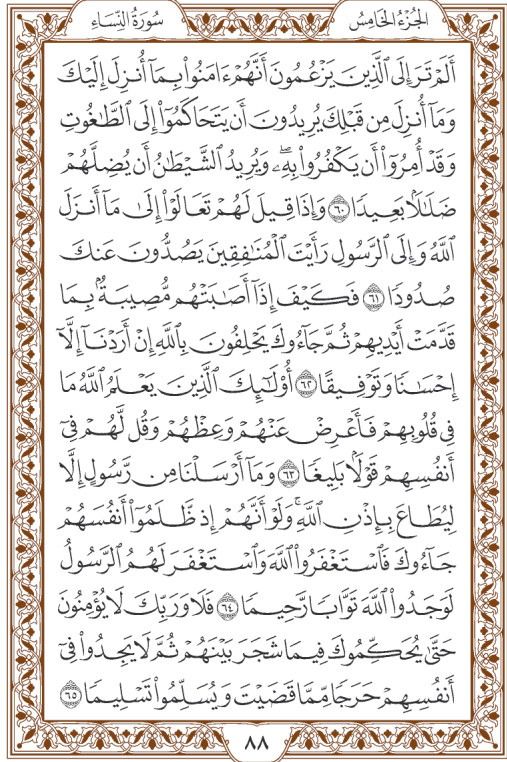 الجُزْءُ الخَامِسُ سُورَةُ النِّسَاءِ
أَلَمْ تَرَ إِلَى ٱلَّذِينَ يَزْعُمُونَ أَنَّهُمْ ءَامَنُوا۟ بِمَآ أُنزِلَ إِلَيْكَ
وَمَآ أُنزِلَ مِن قَبْلِكَ يُرِيدُونَ أَن يَتَحَاكَمُوٓا۟ إِلَى ٱلطَّـٰغُوتِ
وَقَدْ أُمِرُوٓا۟ أَن يَكْفُرُوا۟ بِهِۦۖ وَيُرِيدُ ٱلشَّيْطَـٰنُ أَن يُضِلَّهُمْ
ضَلَـٰلًۢا بَعِيدًا ٦٠ وَإِذَا قِيلَ لَهُمْ تَعَالَوْا۟ إِلَىٰ مَآ أَنزَلَ
ٱللَّهُ وَإِلَى ٱلرَّسُولِ رَأَيْتَ ٱلْمُنَـٰفِقِينَ يَصُدُّونَ عَنكَ
صُدُودًا ٦١ فَكَيْفَ إِذَآ أَصَـٰبَتْهُم مُّصِيبَةٌۢ بِمَا
قَدَّمَتْ أَيْدِيهِمْ ثُمَّ جَآءُوكَ يَحْلِفُونَ بِٱللَّهِ إِنْ أَرَدْنَآ إِلَّآ
إِحْسَـٰنًا وَتَوْفِيقًا ٦٢ أُو۟لَـٰٓئِكَ ٱلَّذِينَ يَعْلَمُ ٱللَّهُ مَا
فِى قُلُوبِهِمْ فَأَعْرِضْ عَنْهُمْ وَعِظْهُمْ وَقُل لَّهُمْ فِىٓ
أَنفُسِهِمْ قَوْلًۢا بَلِيغًا ٦٣ وَمَآ أَرْسَلْنَا مِن رَّسُولٍ إِلَّا
لِيُطَاعَ بِإِذْنِ ٱللَّهِۚ وَلَوْ أَنَّهُمْ إِذ ظَّلَمُوٓا۟ أَنفُسَهُمْ
جَآءُوكَ فَٱسْتَغْفَرُوا۟ ٱللَّهَ وَٱسْتَغْفَرَ لَهُمُ ٱلرَّسُولُ
لَوَجَدُوا۟ ٱللَّهَ تَوَّابًا رَّحِيمًا ٦٤ فَلَا وَرَبِّكَ لَا يُؤْمِنُونَ
حَتَّىٰ يُحَكِّمُوكَ فِيمَا شَجَرَ بَيْنَهُمْ ثُمَّ لَا يَجِدُوا۟ فِىٓ
أَنفُسِهِمْ حَرَجًا مِّمَّا قَضَيْتَ وَيُسَلِّمُوا۟ تَسْلِيمًا ٦٥
٨٨